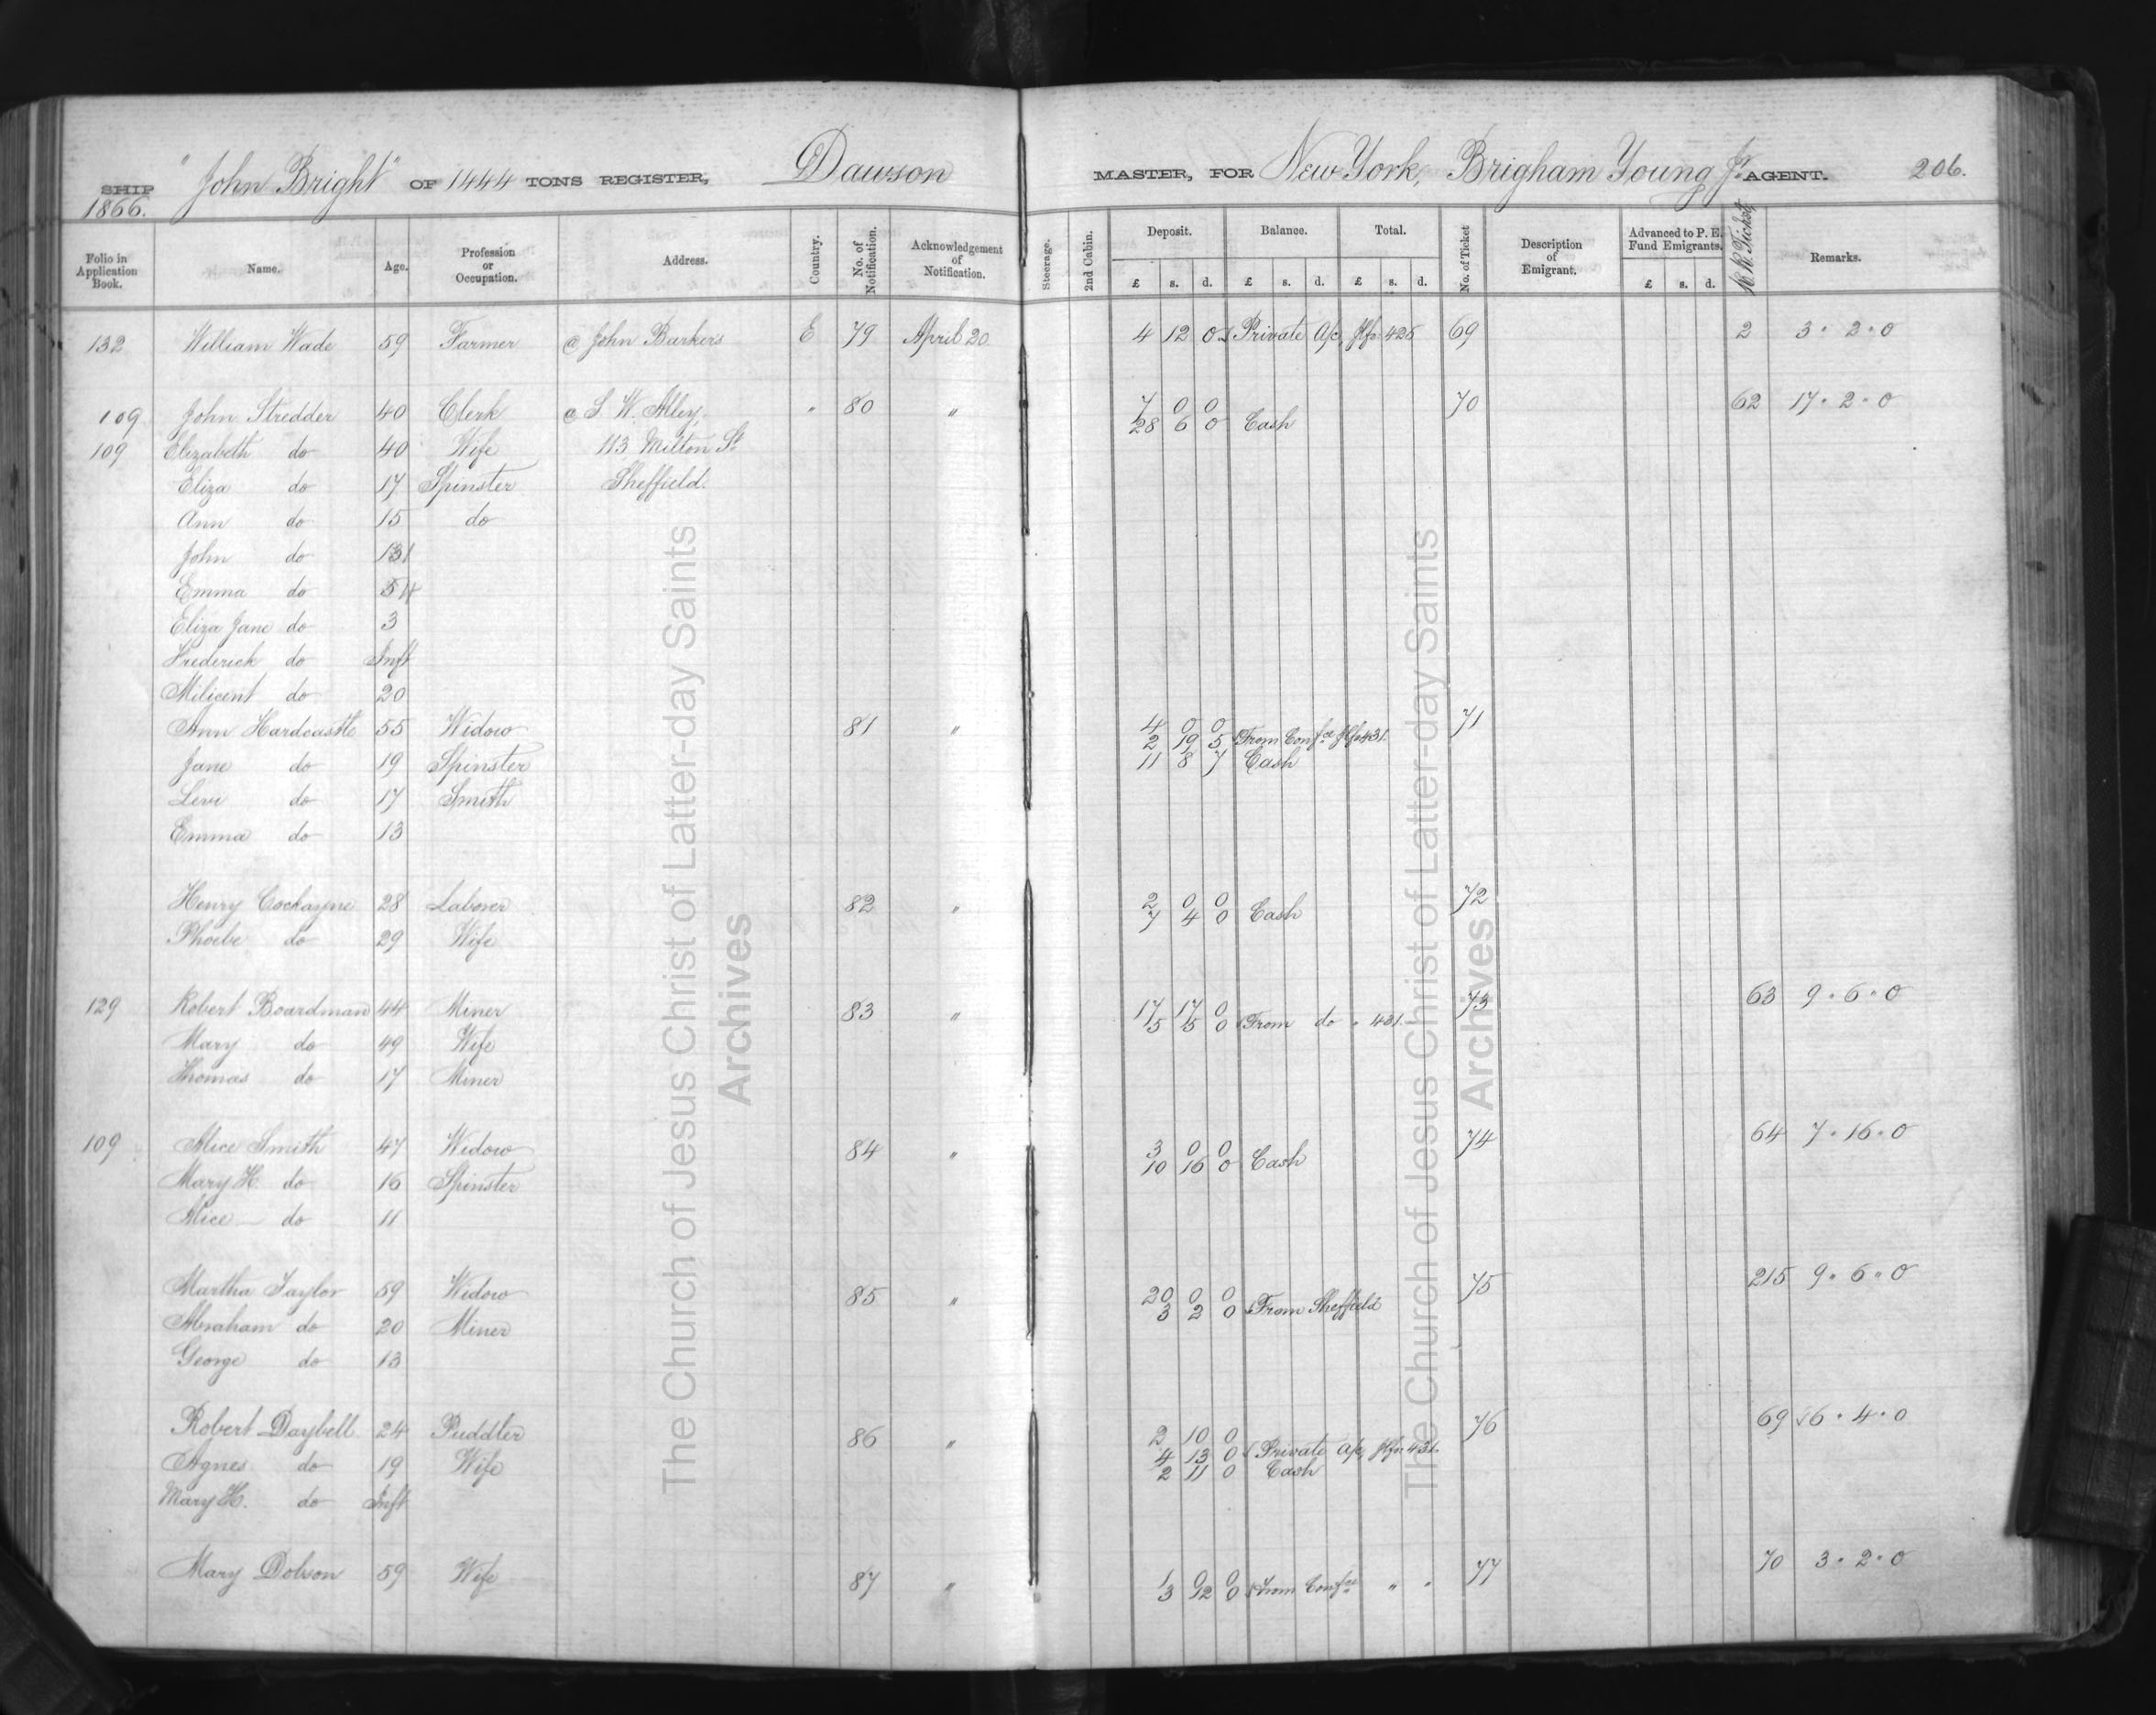 SHIP "John Bright" OF 1444 TONS REGISTER, Dawson MASTER, FOR New York, Brigham Young Jr. AGENT. 206.
1866.
Folio in Application Book. Name. Age. Profession or Occupation. Address. Country. No. of Notification. Acknowledgement of Notification. Steerage. 2nd Cabin. Deposit. Balance. Total. No. of Ticket Description of Emigrant. Advanced to P. E. Fund Emigrants. R. R. Tickets Remarks.
£ s. d. £ s. d. £ s. d. £ s. d.
132 William Wade 59 Farmer @ John Barkers E 79 April 20 4 12 0 Private a/c 425 69 2 3 " 2 " 0
109 John Stredder 40 Clerk @ S. W. Alley, " 80 " 7 0 0 70 62 17 " 2 " 0
28 6 0 Cash
109 Elizabeth do 40 Wife 113, Milton St
Eliza do 17 Spinster Sheffield.
Ann do 15 do
John do
Emma do
Eliza Jane do 3
Frederick do Inft
Milicent do 20
Ann Hardcastle 55 Widow 81 " 4 0 0 71
2 19 5 From Confce 431.
Jane do 19 Spinster 11 8 7 Cash
Levi do 17 Smith
Emma do 13
Henry Cockayne 28 Laborer 82 " 2 0 0 72
7 4 0 Cash
Phoebe do 29 Wife
129 Robert Boardman 44 Miner 83 " 17 17 0 73 63 9 " 6 " 0
5 5 0 From do " 431.
Mary do 49 Wife
Thomas do 17 Miner
109 Alice Smith 47 Widow 84 " 3 0 0 74 64 7 " 16 " 0
10 16 0 Cash
Mary H. do 16 Spinster
Alice do 11
Martha Taylor 59 Widow 85 " 20 0 0 75 215 9 " 6 " 0
3 2 0 From Sheffield
Abraham do 20 Miner
George do 13
Robert Daybell 24 Puddler 86 " 2 10 0 76 69 6 " 4 " 0
4 13 0 Private a/c 431.
Agnes do 19 Wife 2 11 0 Cash
Mary H. do Inft
Mary Dobson 59 Wife 87 " 1 0 0 77 70 3 " 2 " 0
3 12 0 From Confce " "
The Church of Jesus Christ of Latter-day Saints
Archives
The Church of Jesus Christ of Latter-day Saints
Archives